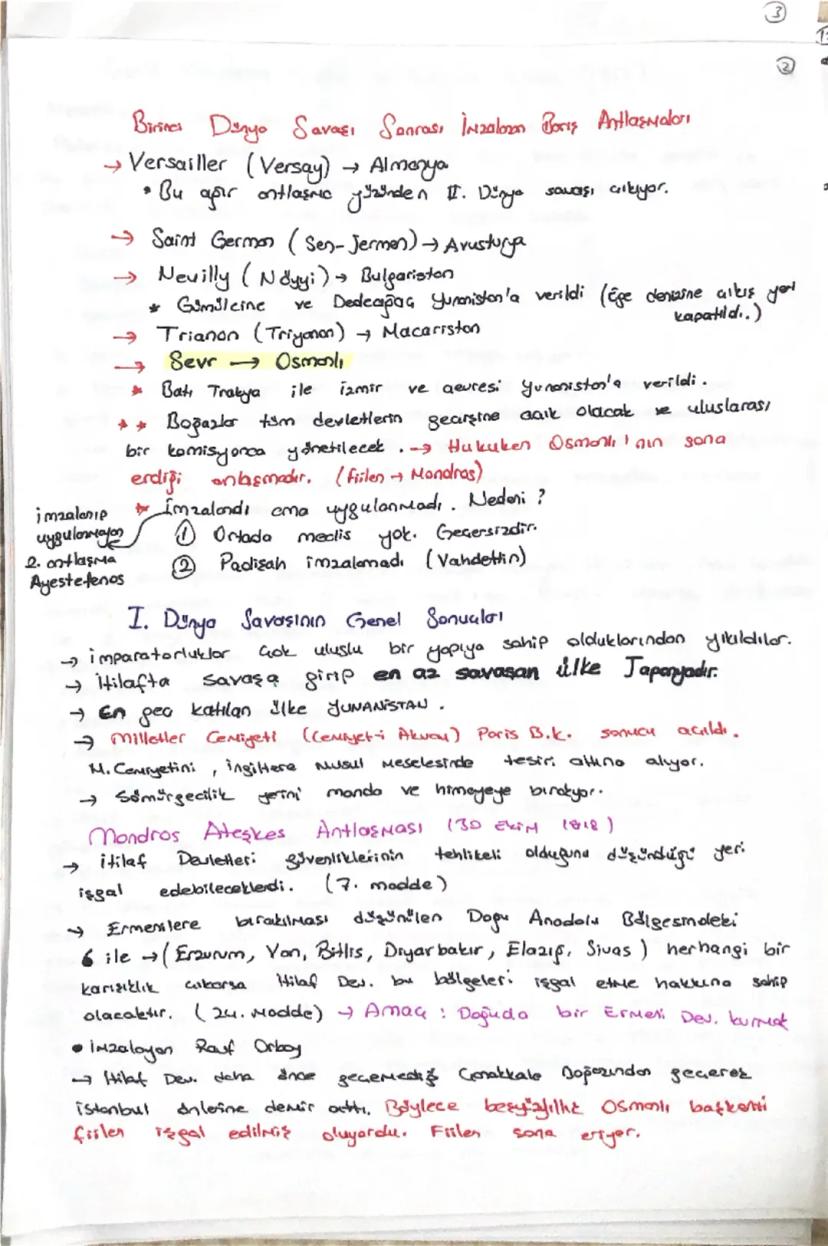 3
2
Birinci Dünya Savaşı Sonrası İmzalanan Barış Antlaşmaları
→ Versailler (Versay) → Almanya
• Bu ağır antlaşma yüzünden II. Dünya savaşı çıkıyor.
→ Saint German (Sen-Jermen) → Avusturya
→ Nevilly (Nöyyi) → Bulgaristan
* Gümülcine ve Dedeağaç Yunanistan'a verildi (Ege denizine çıkış yeri
kapatıldı.)
→ Trianon (Triyanon) → Macaristan
→ Sevr → Osmanlı
* Batı Trakya ile izmir ve çevresi Yunanistan'a verildi.
* * Boğazlar tüm devletlerin geçişine açık olacak ve uluslarası
bir komisyonca yönetilecek. → Hukuken Osmanlı'nın sona
erdiği anlaşmadır. (Fiilen → Mondros)
* İmzalandı ama uygulanmadı. Nedeni?
imzalanıp
uygulanmayan
2. antlaşma
Ayestefenos
① Ortada meclis yok. Geçersizdir.
② Padişah imzalamadı (Vahdettin)
I. Dünya Savaşının Genel Sonuçları
→ imparatorluklar çok uluslu bir yapıya sahip olduklarından yıkıldılar.
→ itilafta savaşa girip en az savaşan ülke Japonyadır.
→ En geç katılan ülke YUNANİSTAN.
→ Milletler Cemiyeti (Cemiyet-i Akvam) Paris B.k. sonucu açıldı.
M. Cemiyetini, ingiltere Musul Meselesinde tesiri altına alıyor.
→ Sömürgecilik yerini manda ve himayeye bırakıyor.
Mondros Ateşkes Antlaşması (30 Ekim 1918)
→ itilaf Devletleri güvenliklerinin tehlikeli olduğunu düşündüğü yeri
işgal edebileceklerdi. (7. madde)
→ Ermenilere bırakılması düşünülen Doğu Anadolu Bölgesindeki
6 ile → (Erzurum, Van, Bitlis, Diyarbakır, Elazığ, Sivas) herhangi bir
karışıklık çıkarsa itilaf Dev. bu bölgeleri işgal etme hakkına sahip
olacaktır. (24. Madde) → Amaç : Doğuda bir Ermeni Dev. kurmak
• imzalayan Rauf Orbay
→ itilaf Dev. daha önce geçemediği Çanakkale Boğazından geçerek
istanbul önlerine demir attı. Böylece beşyüzyıllık Osmanlı başkenti
fiilen işgal edilmiş oluyordu. Fiilen sona eriyor.